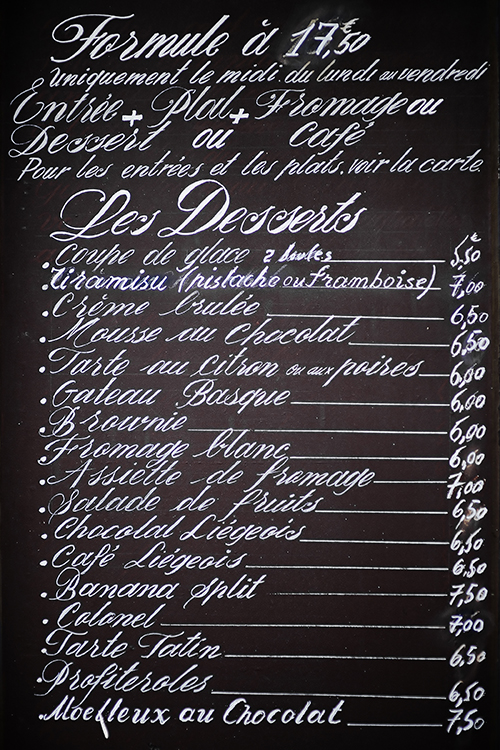 Formule à 17,50€
uniquement le midi du lundi au vendredi
Entrée + Plat + Fromage ou
Dessert ou Café
Pour les entrées et les plats, voir la carte
Les Desserts
. Coupe de glace 2 boules 5,50€
. Tiramisu (pistache ou framboise) 7,00
. Crème brulée 6,50
. Mousse au Chocolat 6,50
. Tarte au Citron ou aux poires 6,00
. Gateau Basque 6,00
. Brownie 6,00
. Fromage blanc 6,00
. Assiette de fromage 7,00
. Salade de fruits 6,50
. Chocolat Liégeois 6,50
. Café Liégeois 6,50
. Banana Split 7,50
. Colonel 7,00
. Tarte Tatin 6,50
. Profiteroles 6,50
. Moelleux au Chocolat 7,50